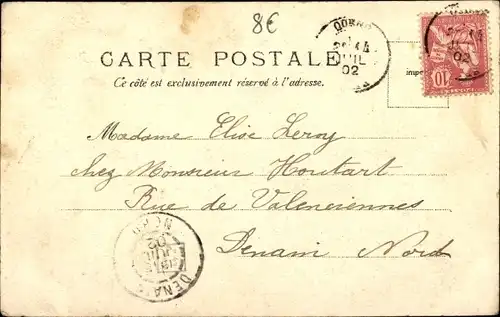 8€
CARTE POSTALE
Ce côté est exclusivement réservé à l'adresse.
Madame Elise Leroy
chez Monsieur Houtart
Rue de Valenciennes
Denain Nord
10
02
02
DENAIN
NORD
JUIL
02